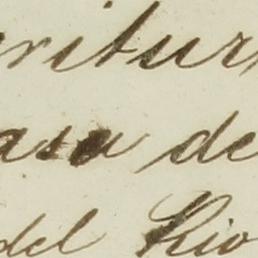 ritur
asa de
del Rio